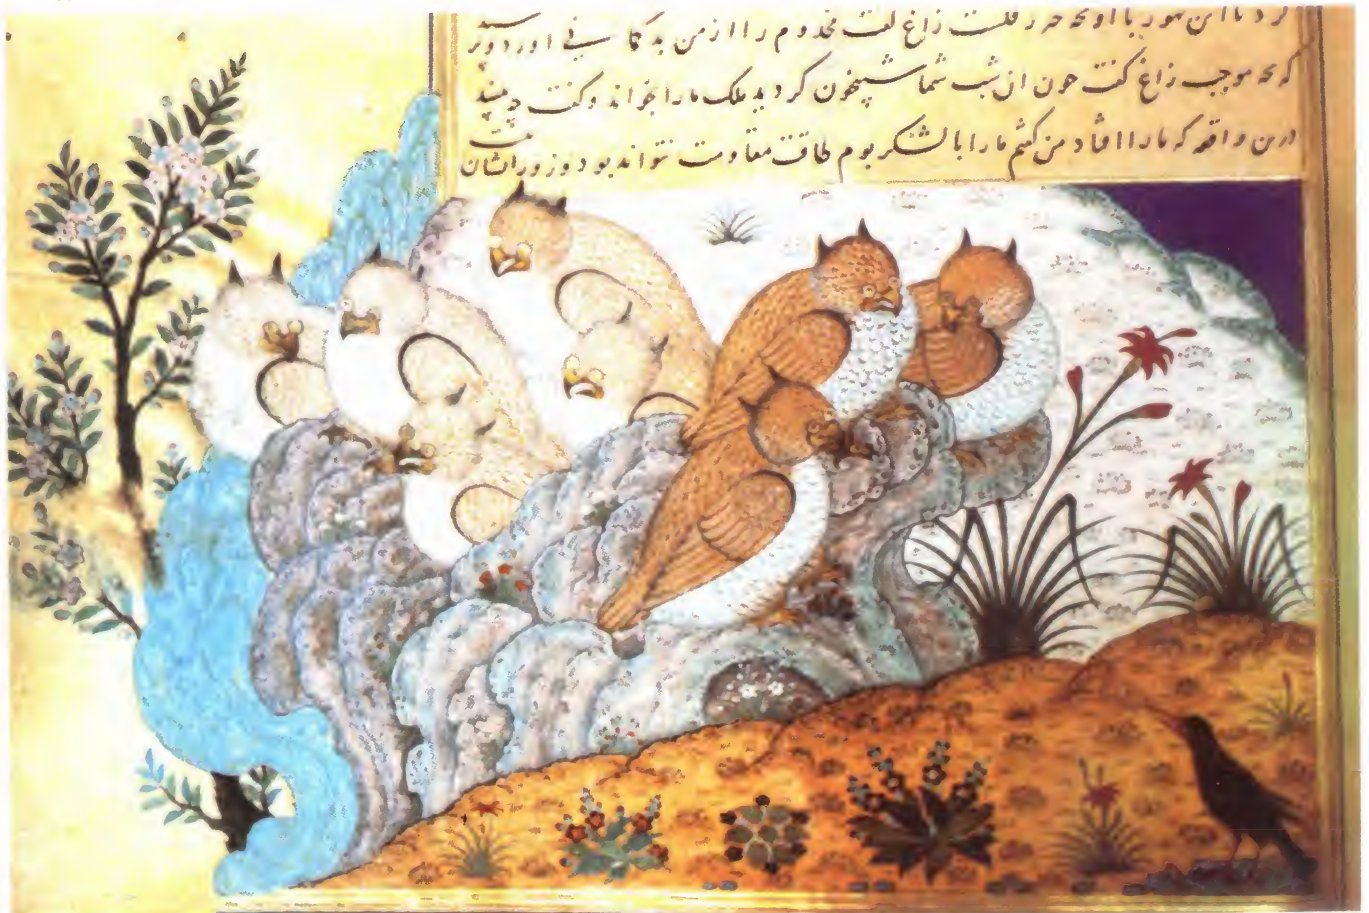 کرد با این هور با او بحه در رفلت زاغ کفت مخدوم را از من بد کما نے اورد و پر سید
که بحه موجب زاغ کفت حون ان شب شما شبیخون کردید ملک ما را بخواند و کفت چه بینید
درین واقعه که ما را افتاد من کفتم ما را با لشکر بوم طاقت مقاومت نتواند بود و زور ایشان